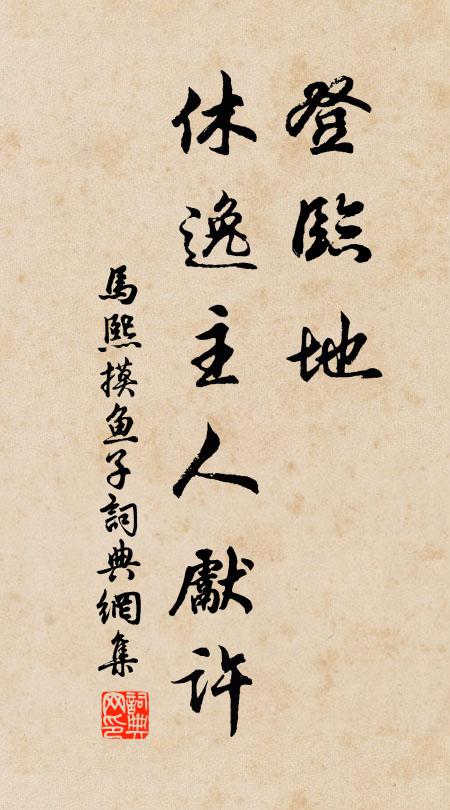 登臨地
休逸主人獻許
馬熙摸魚子詞典網集
詞典网印